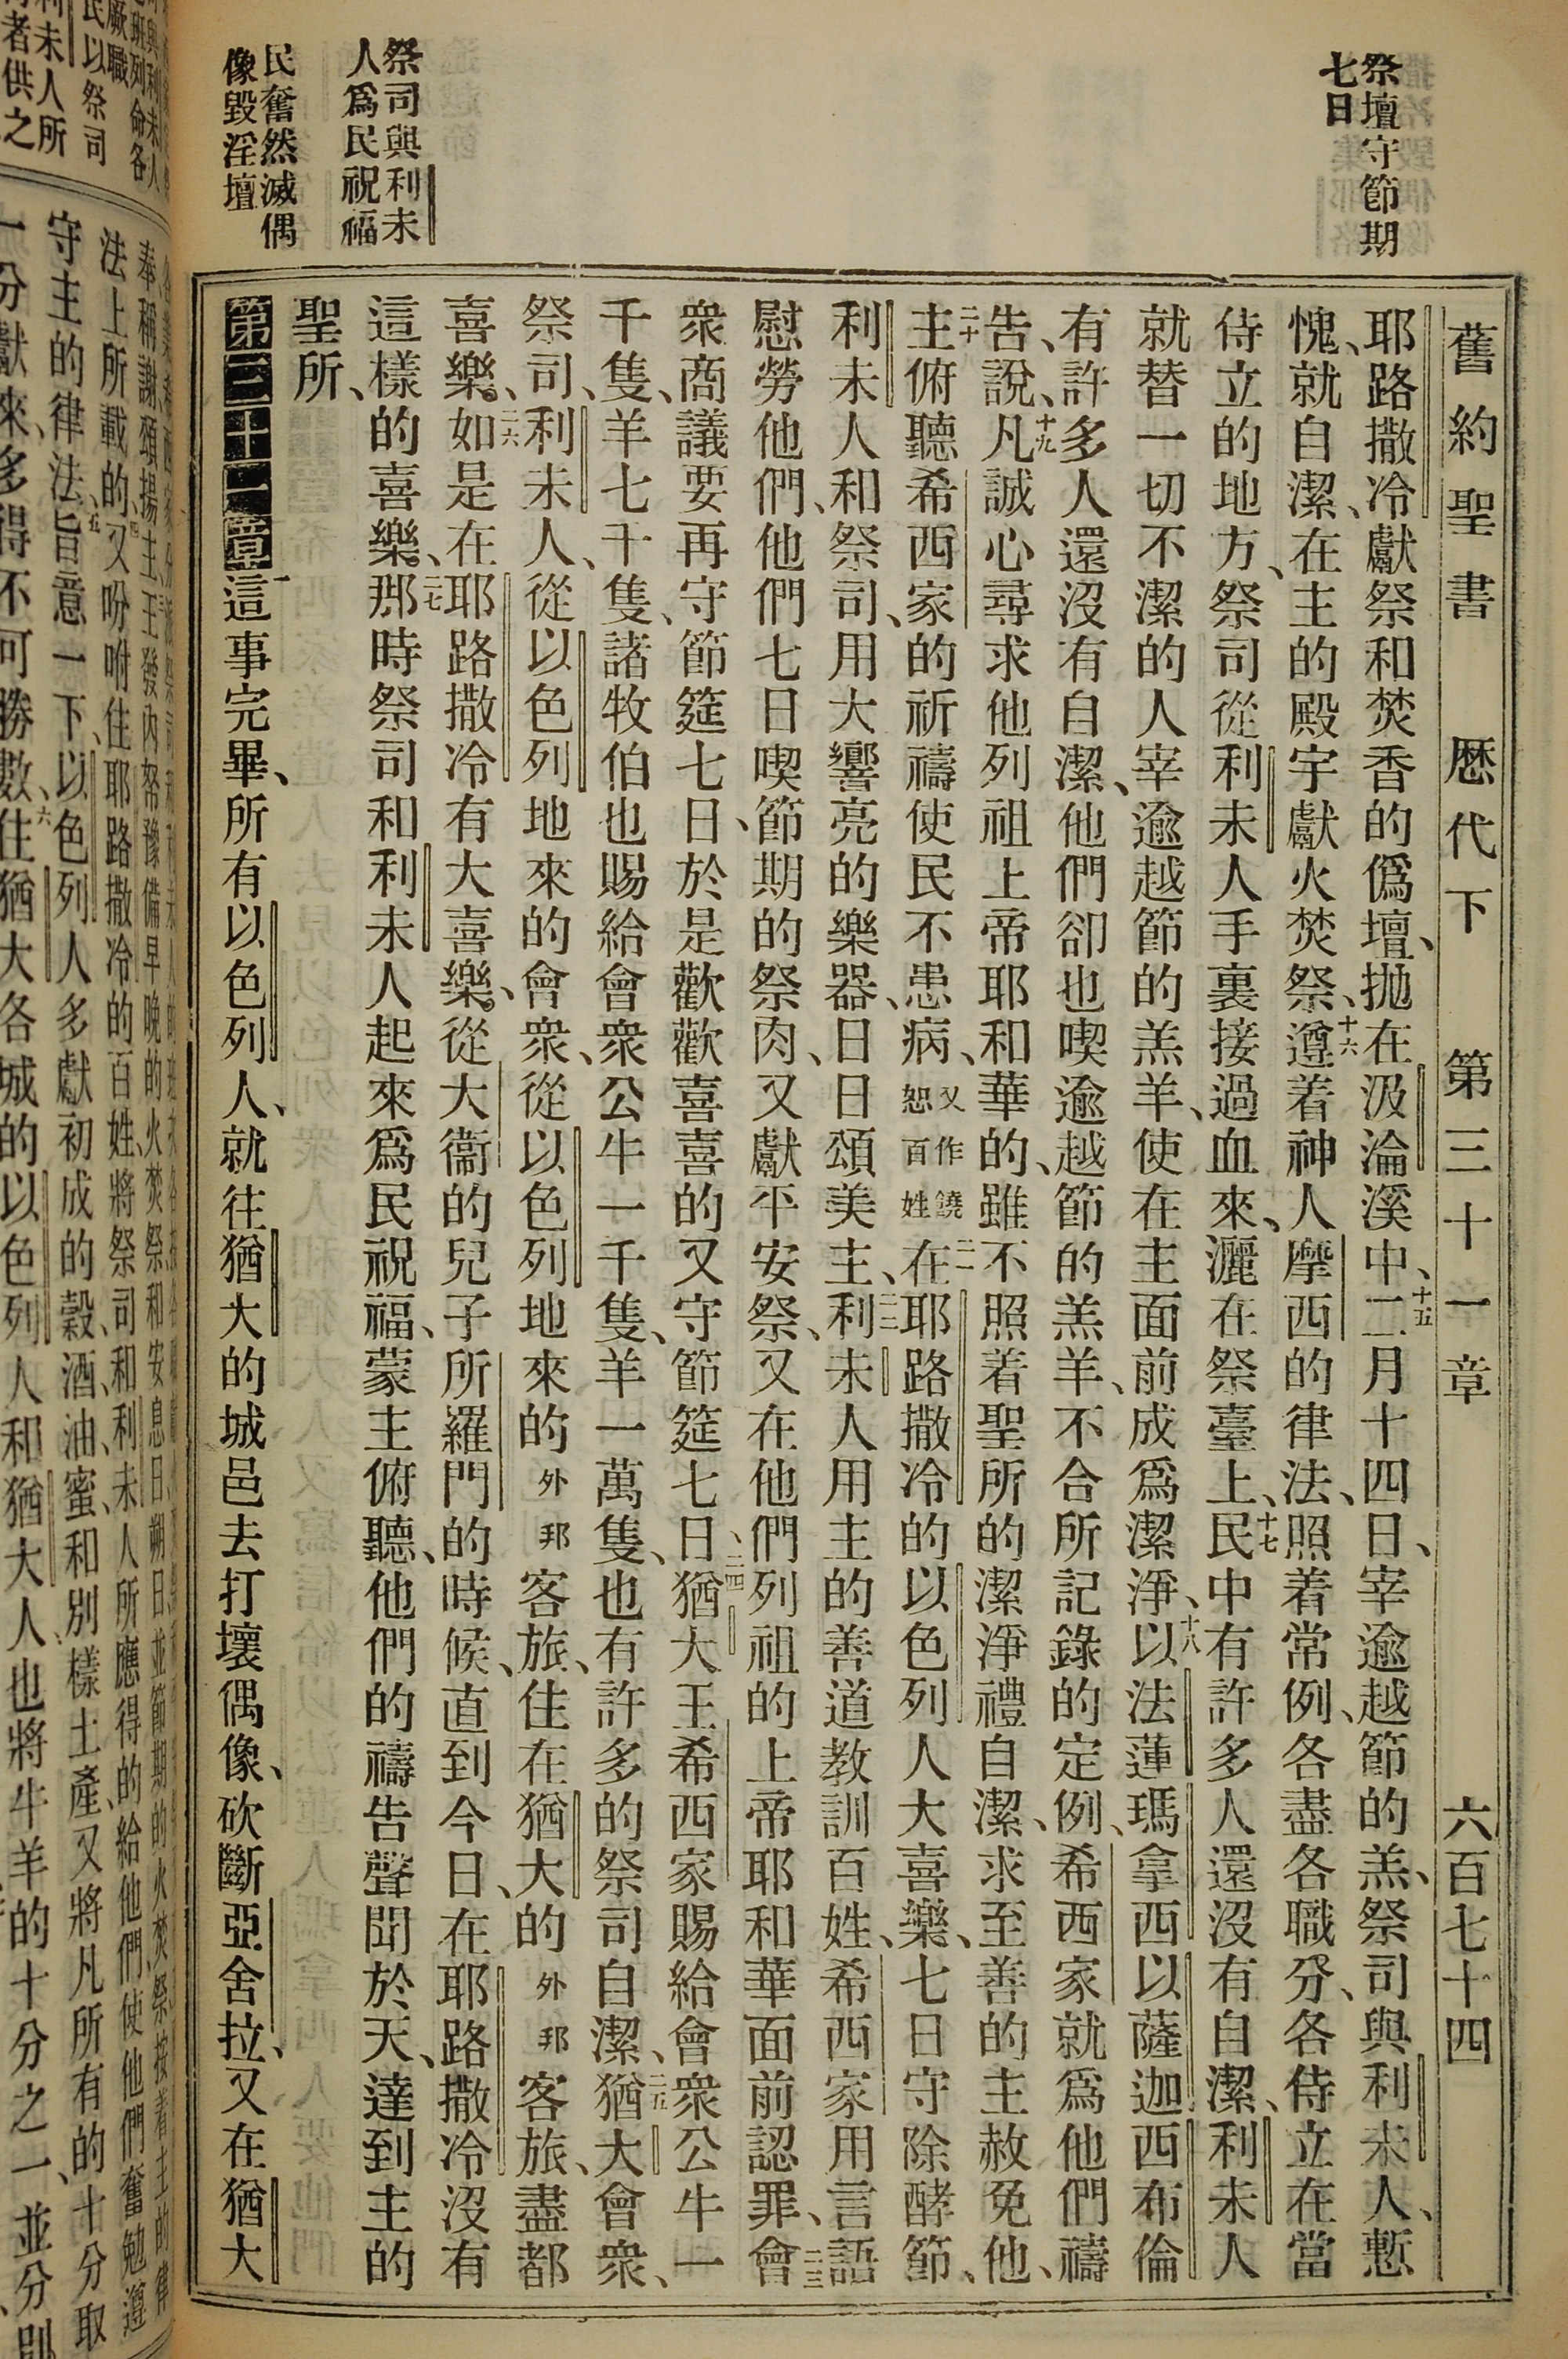 祭壇守節期
七日
祭司與利未
人爲民祝福
民奮然滅偶
像毀淫壇
舊約聖書 歷代下 第三十一章 六百七十四
耶路撒冷獻祭和焚香的僞壇、拋在汲淪溪中、十五二月十四日、宰逾越節的羔、祭司與利未人、慙
愧、就自潔、在主的殿宇獻火焚祭、十六遵着神人摩西的律法、照着常例、各盡各職分、各侍立在當
侍立的地方、祭司從利未人手裏接過血來、灑在祭臺上、十七民中有許多人還沒有自潔、利未人
就替一切不潔的人宰逾越節的羔羊、使在主面前成爲潔淨、十八以法蓮瑪拿西以薩迦西布倫
有許多人還沒有自潔、他們卻也喫逾越節的羔羊、不合所記錄的定例、希西家就爲他們禱
告、說、十九凡誠心尋求他列祖上帝耶和華的、雖不照着聖所的潔淨禮自潔、求至善的主赦免他、
二十主俯聽希西家的祈禱、使民不患病、又作饒恕百姓二一在耶路撒冷的以色列人大喜樂、七日守除酵節、
利未人和祭司、用大響亮的樂器、日日頌美主、二二利未人用主的善道教訓百姓、希西家用言語
慰勞他們、他們七日喫節期的祭肉、又獻平安祭、又在他們列祖的上帝耶和華面前認罪、二三會
衆商議要再守節筵七日、於是歡歡喜喜的又守節筵七日、二四猶大王希西家賜給會衆公牛一
千隻、羊七千隻、諸牧伯也賜給會衆公牛一千隻、羊一萬隻、也有許多的祭司自潔、二五猶大會衆、
祭司、利未人、從以色列地來的會衆、從以色列地來的外邦客旅、住在猶大的外邦客旅、盡都
喜樂、二六如是在耶路撒冷有大喜樂、從大衞的兒子所羅門的時候、直到今日、在耶路撒冷沒有
這樣的喜樂、二七那時祭司和利未人起來爲民祝福、蒙主俯聽、他們的禱告聲聞於天、達到主的
聖所、
第三十一章 一這事完畢、所有以色列人、就往猶大的城邑去打壞偶像、砍斷亞舍拉、又在猶大
奉稱謝頌揚主、
法上所載的、又吩咐住耶路撒冷的百姓、將祭司和利未人所應得的給他們、使他們奮勉遵
守主的律法、五旨意一下、以色列人多獻初成的穀、酒、油、蜜、和別樣土產、又將凡所有的十分取
一分獻來、多得不可勝數、六住猶大各城的以色列人和猶大人也將牛羊的十分之一、並分別